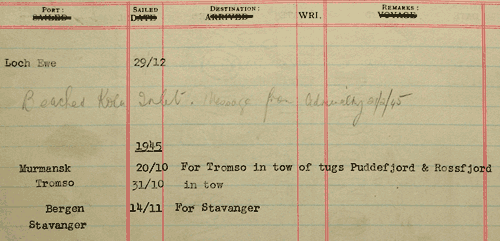 PORT: SAILED DESTINATION: WRI. REMARKS:
SAILED DATE ARRIVED VOYAGE
Loch Ewe 29/12
Beached Kola Inlet. Message from Admiralty /45
1945
Murmansk 20/10 For Tromso in tow of tugs Puddefjord & Rossfjord
Tromso 31/10 in tow
Bergen 14/11 For Stavanger
Stavanger